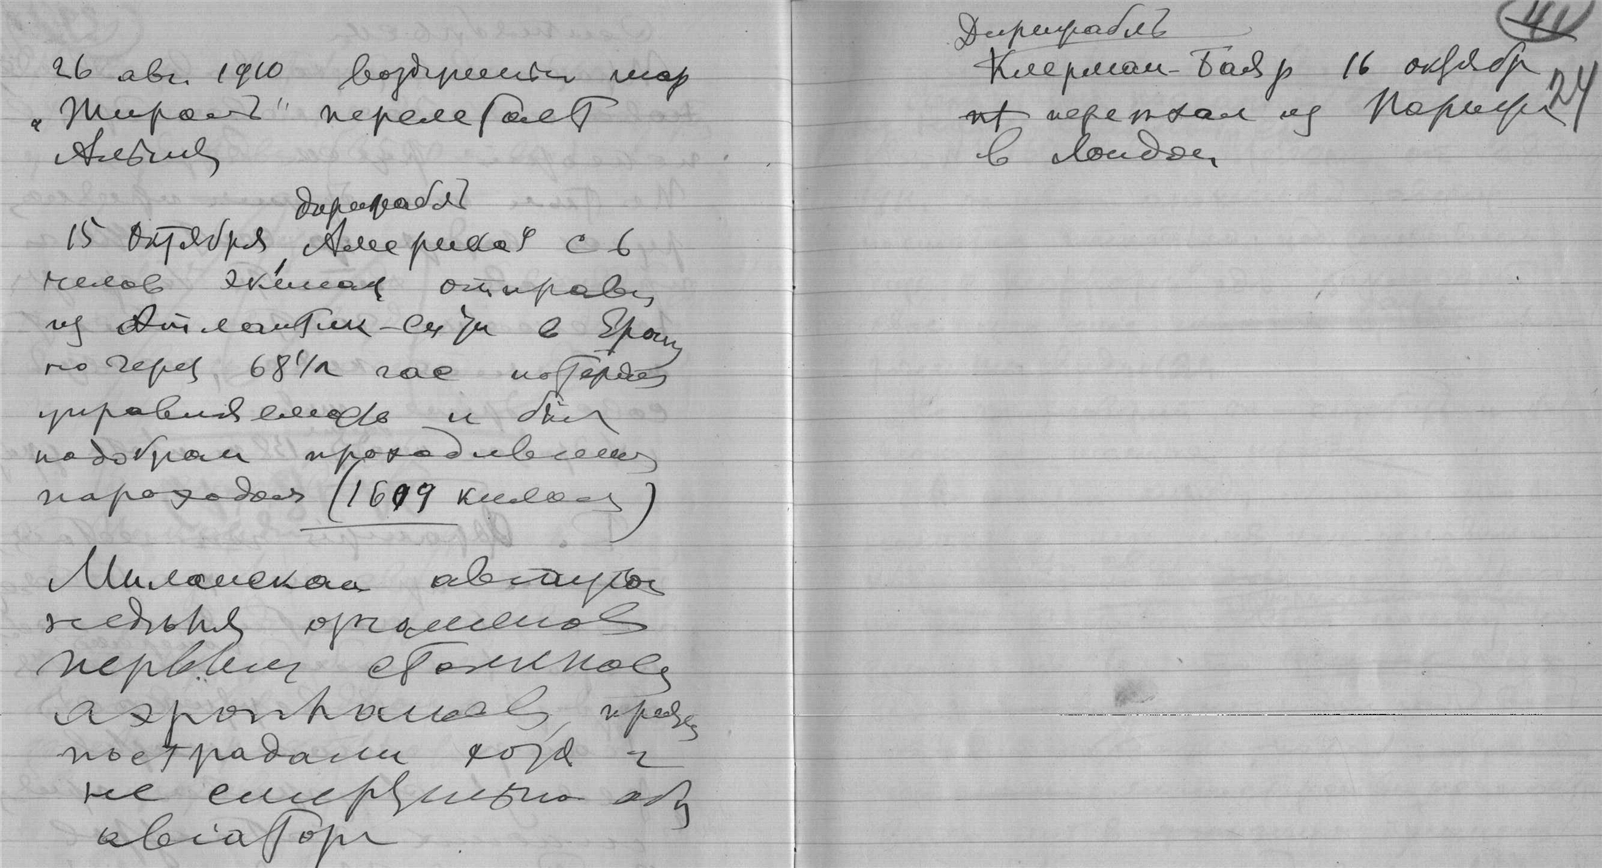 26 авг. 1910 воздушный шар
„Жироль" перелетает
Альпы
дирижабль
15 октября, Америка с 6
челов экипаж отправ
из Атлантик-Сити в Европу
но через 68 1/2 час потерял
управляемость и был
подобран проходившим
пароходом (1609 килом)
Миланская
неделя ознаменов
первым столкнов
аэропланов, причем
пострадали хотя и
не смертельно оба
авіатора
41
24
Дирижабль
Клерман-Баяр 16 октябр
переехал из Парижа
в Лондон